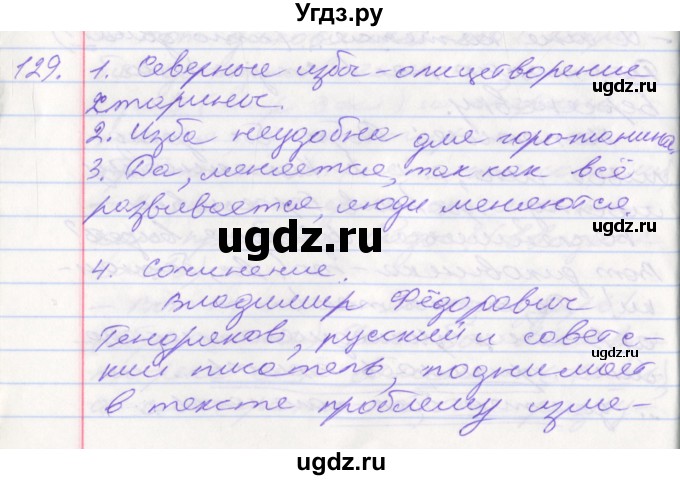 Угдз.ру
129. 1. Северные избы – олицетворение
старины.
2. Изба неудобна для горожанина.
3. Да, меняется, так как всё
©ugdz.ru
развивается, люди меняются.
ugdz.ru
ugdz.ru
4. Сочинение.
Владимир Фёдорович
Тендряков, русский и советс-
©ugdz.ru
кий писатель, поднимает
в тексте проблему изме-
ugdz.ru